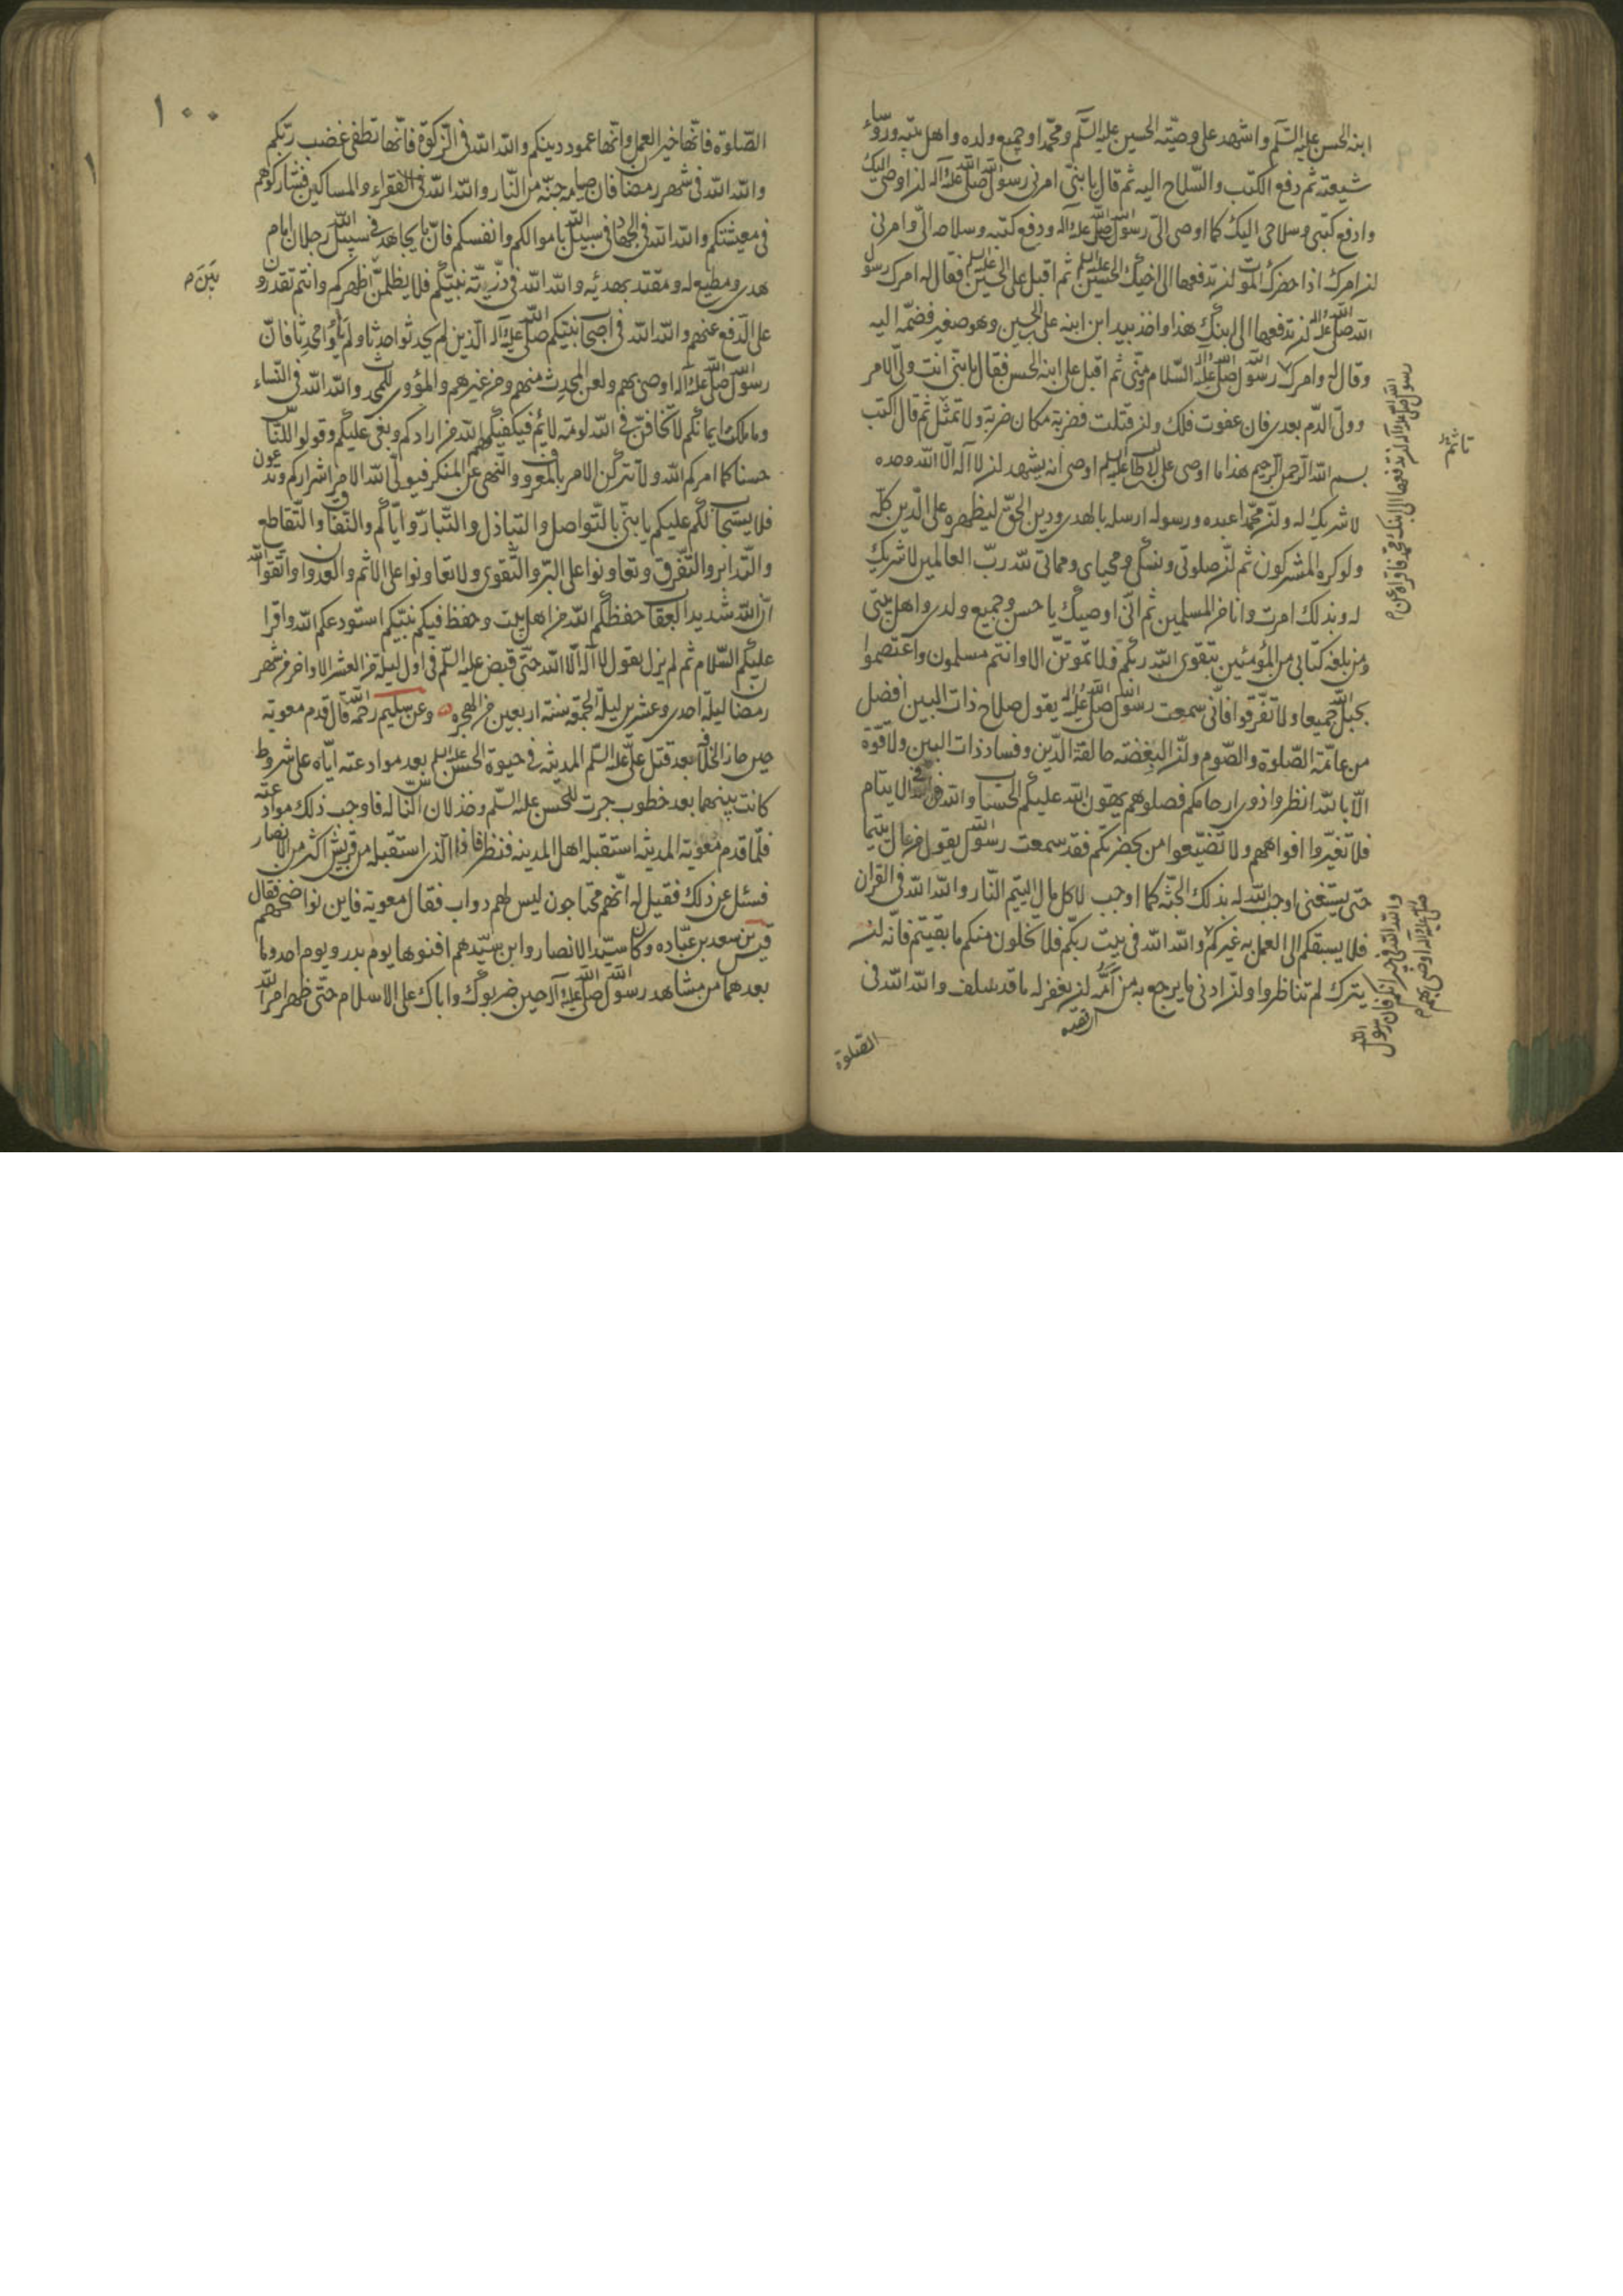 ابنه الحسن عليه السّلم واشهد على وصيّته الحسين عليه السّلم ومحمّدا وجميع ولده واهل بيته ورؤساء
شيعته ثم دفع الكتب والسّلاح اليه ثم قال يا بنيّ امرني رسول الله صلّى الله عليه وآله ان اوصي اليك
وادفع كتبي وسلاحي اليك كما اوصى اليّ رسول الله صلّى الله عليه وآله ودفع كتبه وسلاحه اليّ وامرني
ان امرك اذا حضرك الموت ان تدفعها الى اخيك الحسين عليه السلم ثم اقبل على الحسين عليه السلم فقال له امرك رسول
الله صلّى الله عليه وآله ان تدفعها الى ابنك هذا واخذ بيد ابن ابنه علي بن الحسين وهو صغير فضمّه اليه
وقال له وامرك رسول الله صلّى الله عليه وآله السّلام ومنّي ثم اقبل على ابنه الحسن فقال يا بنيّ انت وليّ الامر
وولّى الدّم بعدي فان عفوت فلك وان قتلت فضربة مكان ضربة ولا تمثّل ثم قال اكتب
بسم الله الرّحمن الرّحيم هذا ما اوصى علي بن ابي طالب عليه السلم اوصى انه يشهد ان لا اله الّا الله وحده
لا شريك له وانّ محمّدا عبده ورسوله ارسله بالهدى ودين الحقّ ليظهره على الدّين كلّه
ولو كره المشركون ثم انّ صلوتي ونسكي ومحياي ومماتي لله ربّ العالمين لا شريك
له وبذلك امرت وانا من المسلمين ثم انّي اوصيك يا حسن وجميع ولدي واهل بيتي
ومن بلغه كتابي من المؤمنين بتقوى الله ربّكم فلا تموتنّ الا وانتم مسلمون واعتصموا
بحبل الله جميعا ولا تفرّقوا فانّي سمعت رسول الله صلّى الله عليه وآله يقول صلاح ذات البين افضل
من عامّة الصّلوة والصّوم وانّ البغضة حالقة الدّين وفساد ذات البين ولا قوّة
الّا بالله انظروا ذوي ارحامكم فصلوهم يهون الله عليكم الحساب والله الله في الايتام
فلا تغيّروا افواههم ولا تضيّعوا من بحضرتكم فقد سمعت رسول الله يقول من عال يتيما
حتّى يستغني اوجب الله له بذلك الجنّة كما اوجب لاكل مال اليتيم النّار والله الله في القران
فلا يسبقكم الى العمل به غيركم والله الله في بيت ربّكم فلا تخلون منكم ما بقيتم فانّه ان
يترك لم تناظروا وان ادنى ما يرجع به من امّه ان يغفر له ما قد سلف والله الله في
الصّلوة
رسول الله صلى الله عليه وآله ان تدفعها الى ابنك محمد فاقراه عن م
تأثم
والله الله في جيرانكم فان رسول الله
صلى الله عليه وآله اوصى بهم م
١٠٠
الصّلوة فانّها خير العمل وانّها عمود دينكم والله الله في الزّكوة فانّها تطفي غضب ربّكم
والله الله في شهر رمضان فان صيامه جنّة من النّار والله الله في الفقراء والمساكين فشاركوهم
في معيشتكم والله الله في الجهاد في سبيل الله باموالكم وانفسكم فانّما يجاهد في سبيل الله رجلان امام
هدى ومطيع له ومقتد بهديه والله الله في ذرّيّة نبيّكم فلا يظلمنّ اظهركم وانتم تقدرون
على الدّفع عنهم والله الله في اصحاب نبيّكم صلّى الله عليه وآله الّذين لم يحدثوا حدثا ولم يأووا محدثا فانّ
رسول الله صلّى الله عليه وآله اوصى بهم ولعن المحدث منهم ومن غيرهم والمؤوي للمحدث والله الله في النّساء
وما ملكت ايمانكم لا تخافنّ في الله لومة لائم فيكفيكهم الله من ارادكم وبغى عليكم وقولوا للنّاس
حسنا كما امركم الله ولا تتركنّ الامر بالمعروف والنّهي عن المنكر فيولّى الله الامر اشراركم وتدعون
فلا يستجاب لكم عليكم يا بنيّ بالتّواصل والتّباذل والتّبارّ وايّاكم والنّفاق والتّقاطع
والتّدابر والتّفرّق وتعاونوا على البرّ والتّقوى ولا تعاونوا على الاثم والعدوان واتّقوا الله
انّ الله شديد العقاب حفظكم الله من اهل بيت وحفظ فيكم نبيّكم استودعكم الله واقرأ
عليكم السّلام ثم لم يزل يقول لا اله الّا الله حتّى قبض عليه السّلم في اول ليلة من العشر الاواخر من شهر
رمضان ليلة احدى وعشرين ليلة الجمعة سنة اربعين من الهجره وعن سليم رحمه الله قال قدم معوية
حين حاز الخلافة بعد قتل علي عليه السّلم المدينة في حيوة الحسن عليه السلم بعد موادعته ايّاه على شروط
كانت بينهما بعد خطوب جرت للحسن عليه السّلم وخذلان النّاس له فاوجب ذلك موادعته
فلمّا قدم معوية المدينة استقبله اهل المدينة فنظر فاذا الّذي استقبله من قريش اكثر من الانصار
فسئل عن ذلك فقيل له انّهم محتاجون ليس لهم دواب فقال معوية فاين نواضحهم فقال
قيس بن سعد بن عبّاده وكان سيّد الانصار وابن سيّدهم افنوها يوم بدر ويوم احد وما
بعدهما من مشاهد رسول الله صلّى الله عليه وآله حين ضربوك واباك على الاسلام حتّى ظهر امر الله
بَيْنَ م